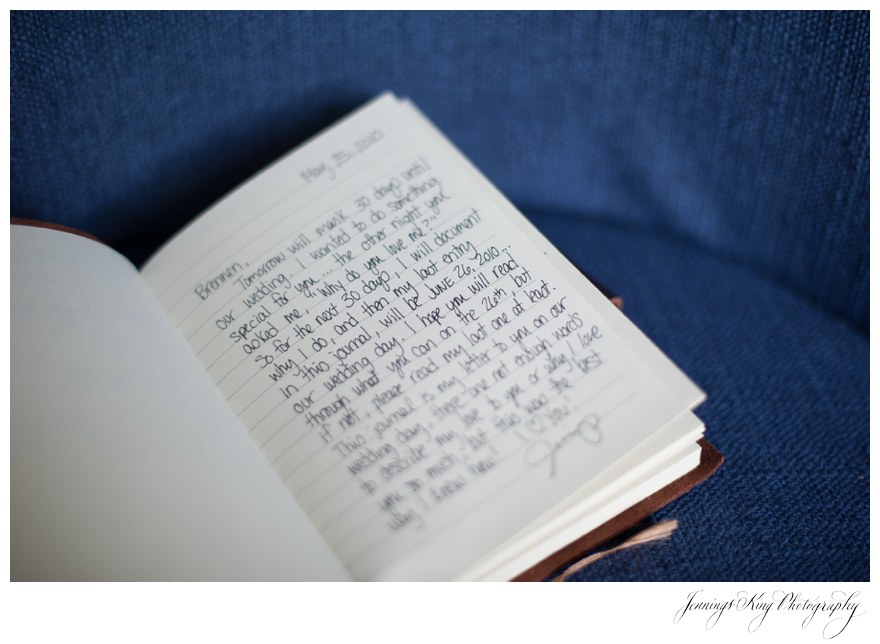 May 25, 2010
Brennen,
Tomorrow will mark 30 days until
our wedding. I wanted to do something
special for you ... the other night you
asked me, "Why do you love me?"
So for the next 30 days, I will document
why I do, and then my last entry
in this journal, will be JUNE 26, 2010 ...
our wedding day. I hope you will read
through what you can on the 26th, but
if not, please read my last one at least.
This journal is my letter to you on our
wedding day. There are not enough words
to describe my love to you or why I love
you so much, but this was the best
way I knew how! I ♡ You!
Jennings King Photography